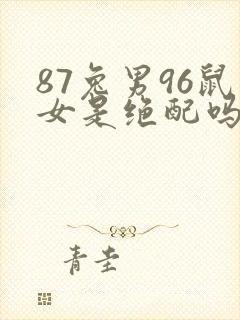 87兔男96鼠
女是绝配吗
青圭